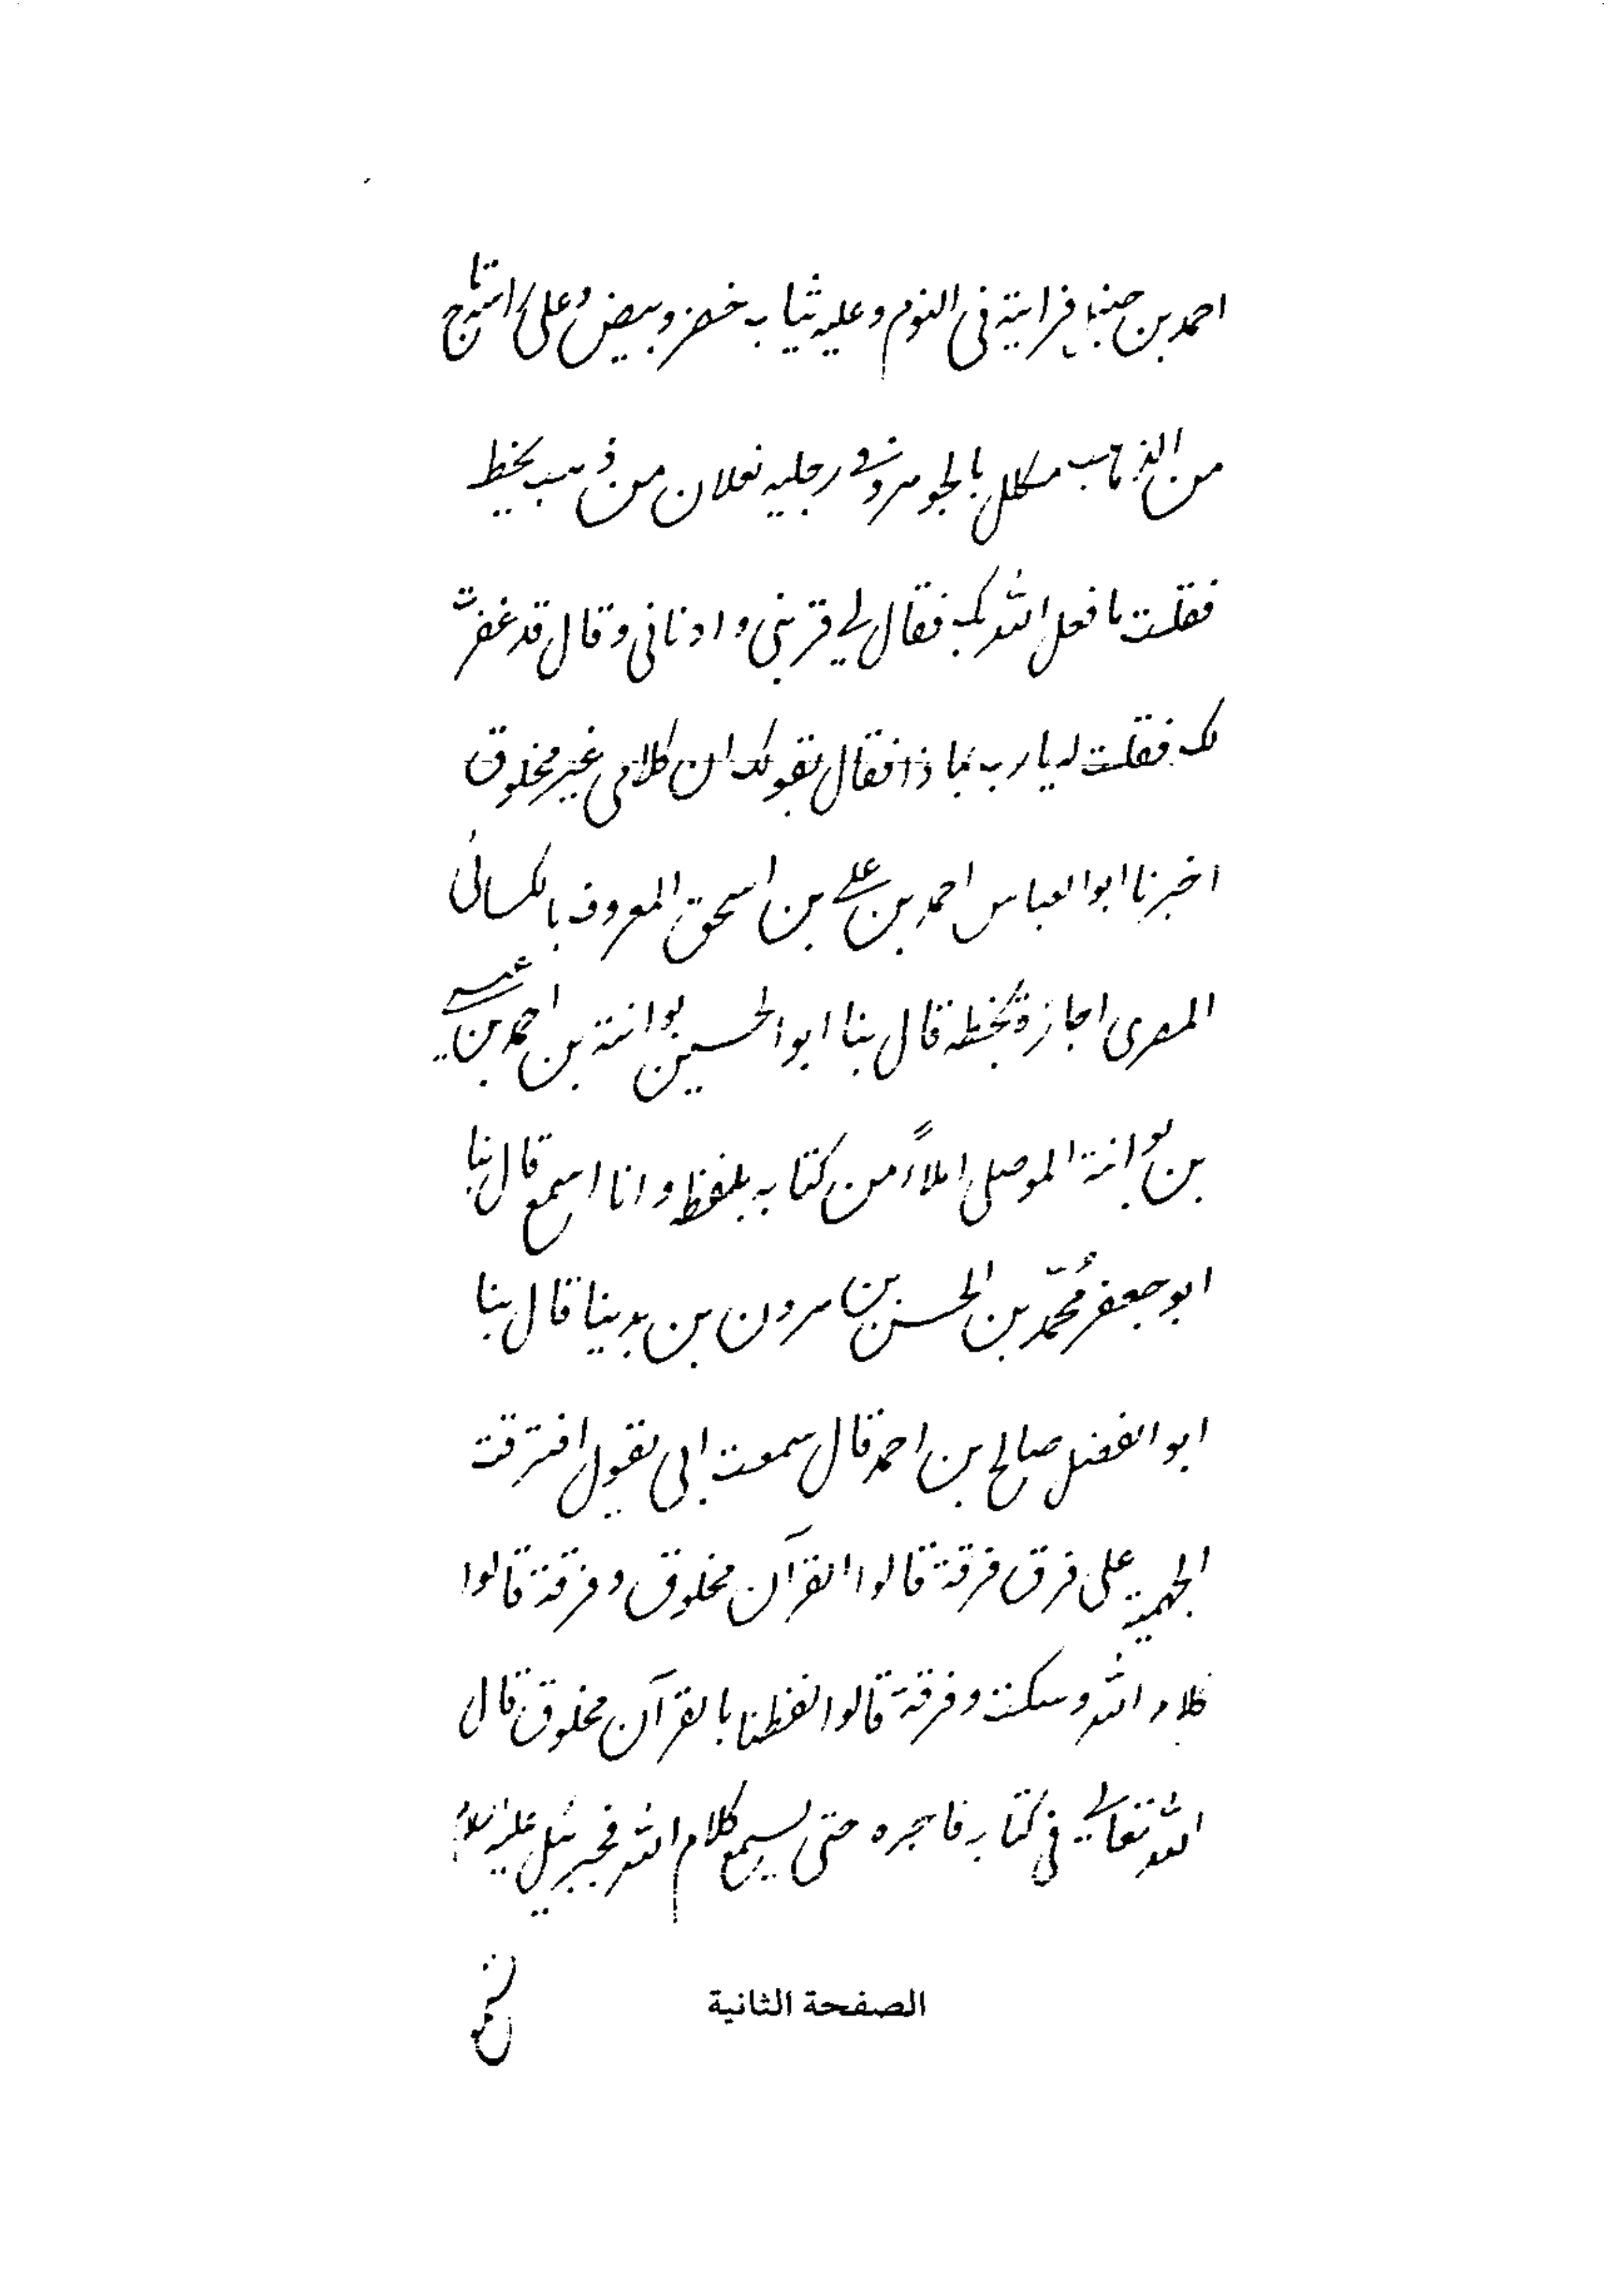 احمد بن حنبل فرايته فى النوم وعليه ثياب خضر وبيض وعلى راسه تاج
من الذهب مكلل بالجوهر وفي رجليه نعلان من ذهب يخط
فقلت ما فعل الله بك فقال لي قربنى وادنانى وقال قد غفرت
لك فقلت له يا رب بما ذا فقال بقولك ان كلامى غير مخلوق
اخبرنا ابو العباس احمد بن علي بن اسحق المعروف بالكسائى
المصرى اجازة بخطه قال بنا ابو الحسين بوانة بن احمد بن عيسى
بن بوانة الموصلى املاءً من كتابه بلفظه وانا اسمع قال بنا
ابو جعفر محمد بن الحسن بن هرون بن بدينا قال بنا
ابو الفضل صالح بن احمد قال سمعت ابى يقول افترقت
الجهمية على فرق فرقة قالوا القرآن مخلوق وفرقة قالوا
كلام الله وسكت وفرقة قالوا لفظنا بالقرآن مخلوق قال
الله تعالي فى كتابه فاجره حتى يسمع كلام الله فجبرئيل عليه السلام
الصفحة الثانية